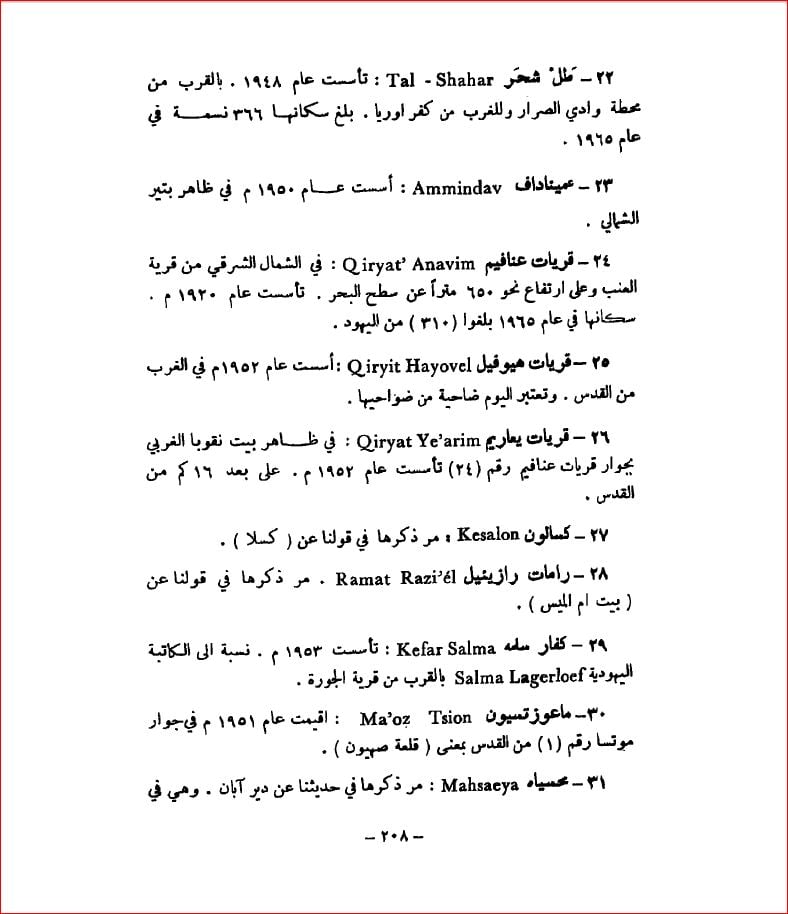 ٢٢ ــ طَلْ شحَر Tal - Shahar : تأسست عام ١٩٤٨ . بالقرب من
محطة وادي الصرار وللغرب من كفر اوريا . بلغ سكانهـا ٣٦٦ نسمـــة في
عام ١٩٦٥ .
٢٣ ــ عميناداف Ammindav : أسست عـــام ١٩٥٠ م في ظاهر بتير
الشمالي .
٢٤ ــ قريات عنافيم Qiryat' Anavim : في الشمال الشرقي من قرية
العنب وعلى ارتفاع نحو ٦٥٠ متراً عن سطح البحر . تأسست عام ١٩٢٠ م .
سكانها في عام ١٩٦٥ بلغوا (٣١٠) من اليهود .
٢٥ ــ قريات هيوفيل Qiryit Hayovel : أسست عام ١٩٥٢م في الغرب
من القدس . وتعتبر اليوم ضاحية من ضواحيها .
٢٦ ــ قريات يعاريم Qiryat Ye'arim : في ظـــاهر بيت نقوبا الغربي
بجوار قريات عنافيم رقم (٢٤) تأسست عام ١٩٥٢ م . على بعد ١٦ كم من
القدس .
٢٧ ــ كسالون Kesalon : مر ذكرها في قولنا عن ( كسلا ) .
٢٨ ــ رامات رازيئيل Ramat Razi'él . مر ذكرها في قولنا عن
( بيت ام الميس ) .
٢٩ ــ كفار سلمه Kefar Salma : تأسست ١٩٥٣ م . نسبة الى الكاتبة
اليهودية Salma Lagerloef بالقرب من قرية الجورة .
٣٠ ــ ماعوز تسيون Ma'oz Tsion : اقيمت عام ١٩٥١ م في جوار
موتسا رقم (١) من القدس بمعنى ( قلعة صهيون ) .
٣١ ــ محسياه Mahsaeya : مر ذكرها في حديثنا عن دير آبان . وهي في
ــ ٢٠٨ ــ